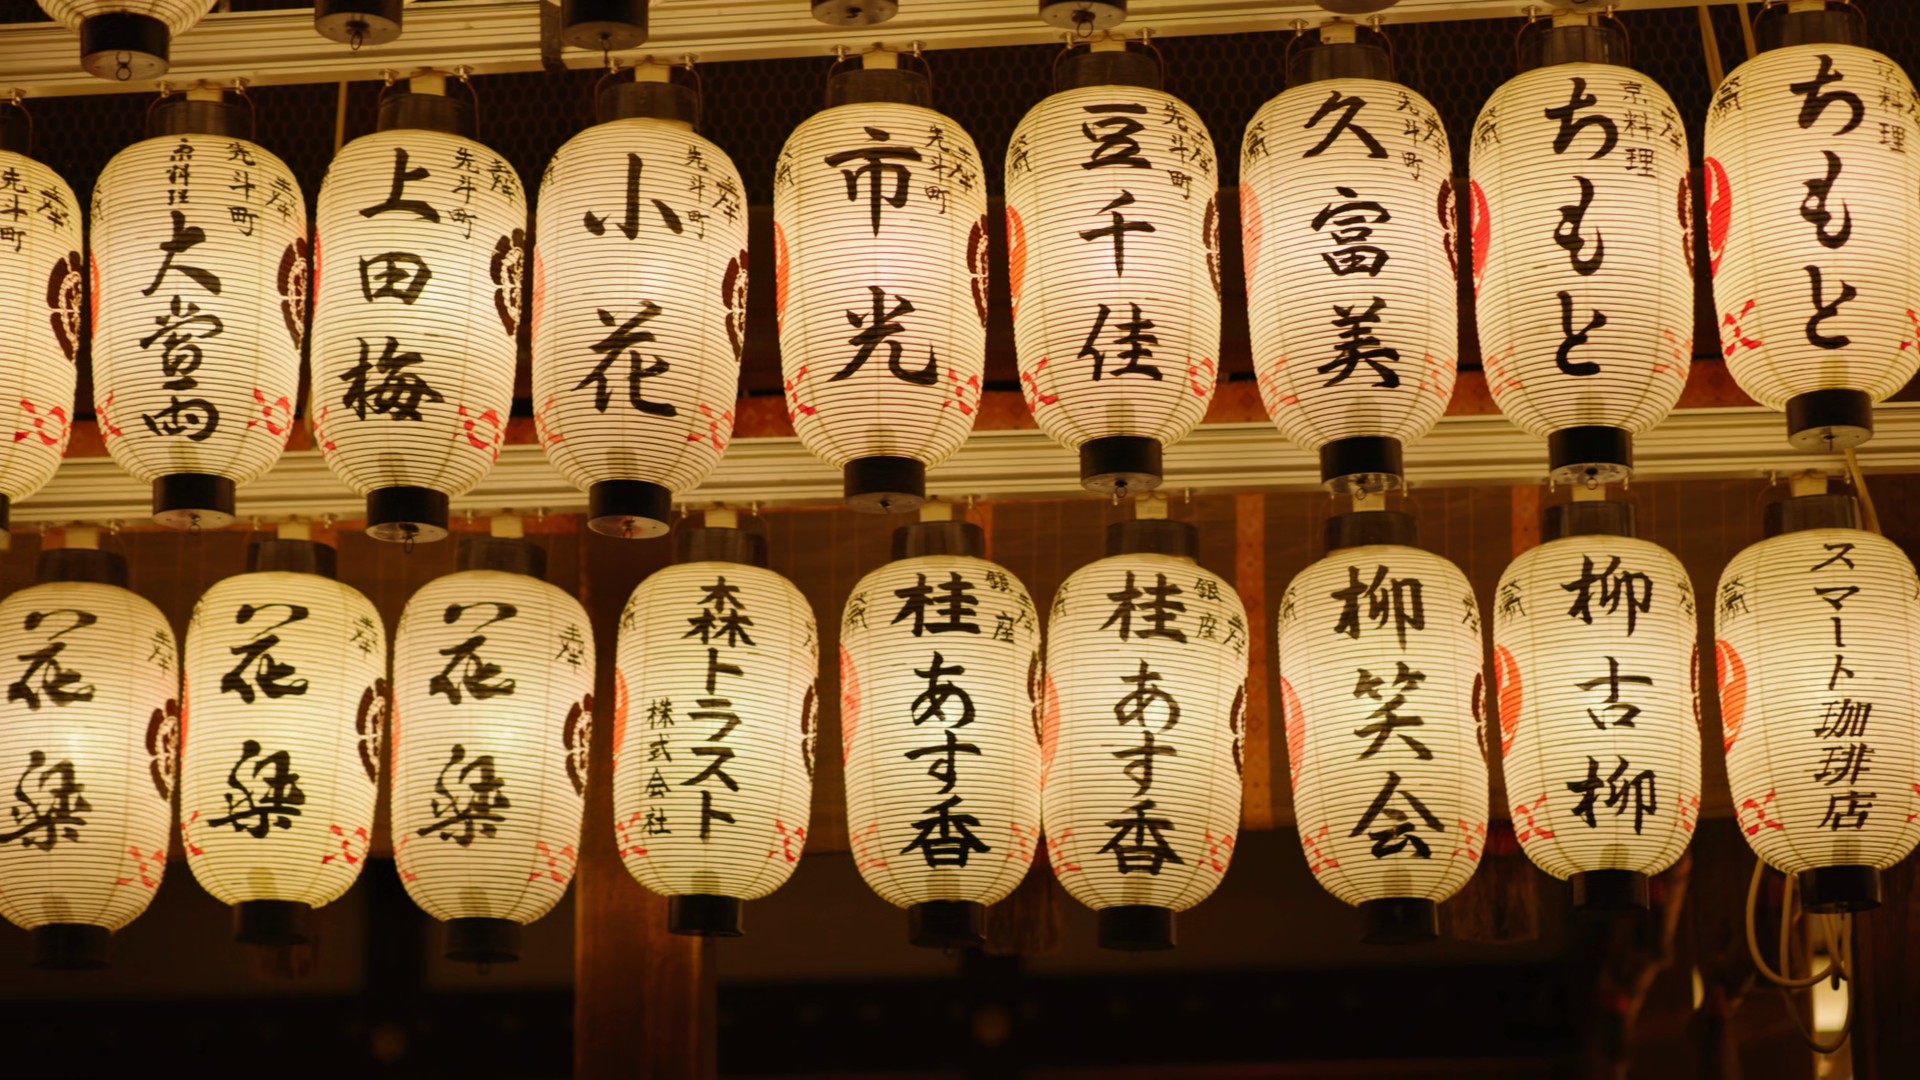 先斗町
京料理
大當両
先斗町
上田梅
先斗町
小花
先斗町
市光
先斗町
豆千佳
先斗町
久富美
京料理
ちもと
京料理
ちもと
先斗町
花梁
花梁
花梁
森トラスト
株式会社
銀座
桂あす香
銀座
桂あす香
柳笑会
柳古柳
スマート珈琲店